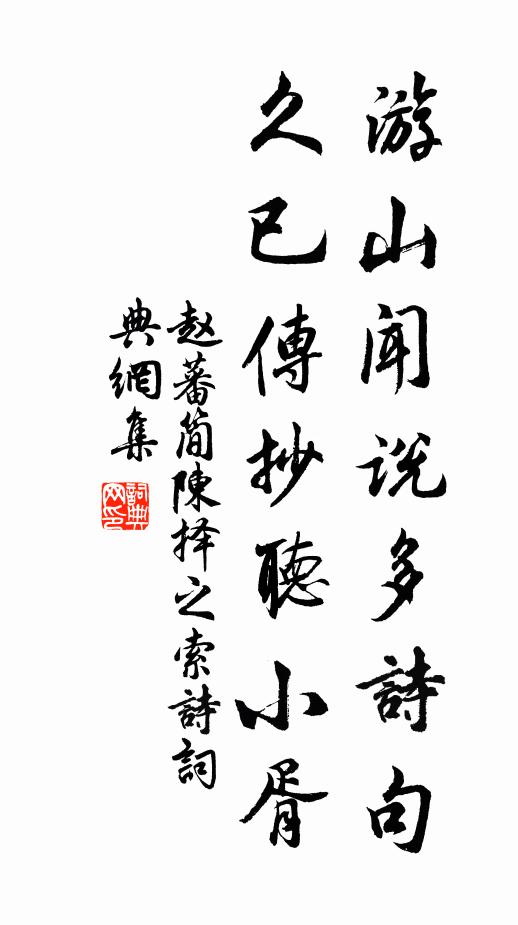 游山闻说多詩句
久已傳抄聽小胥
赵蕃简陳择之索詩詞
典網集
詞典网印